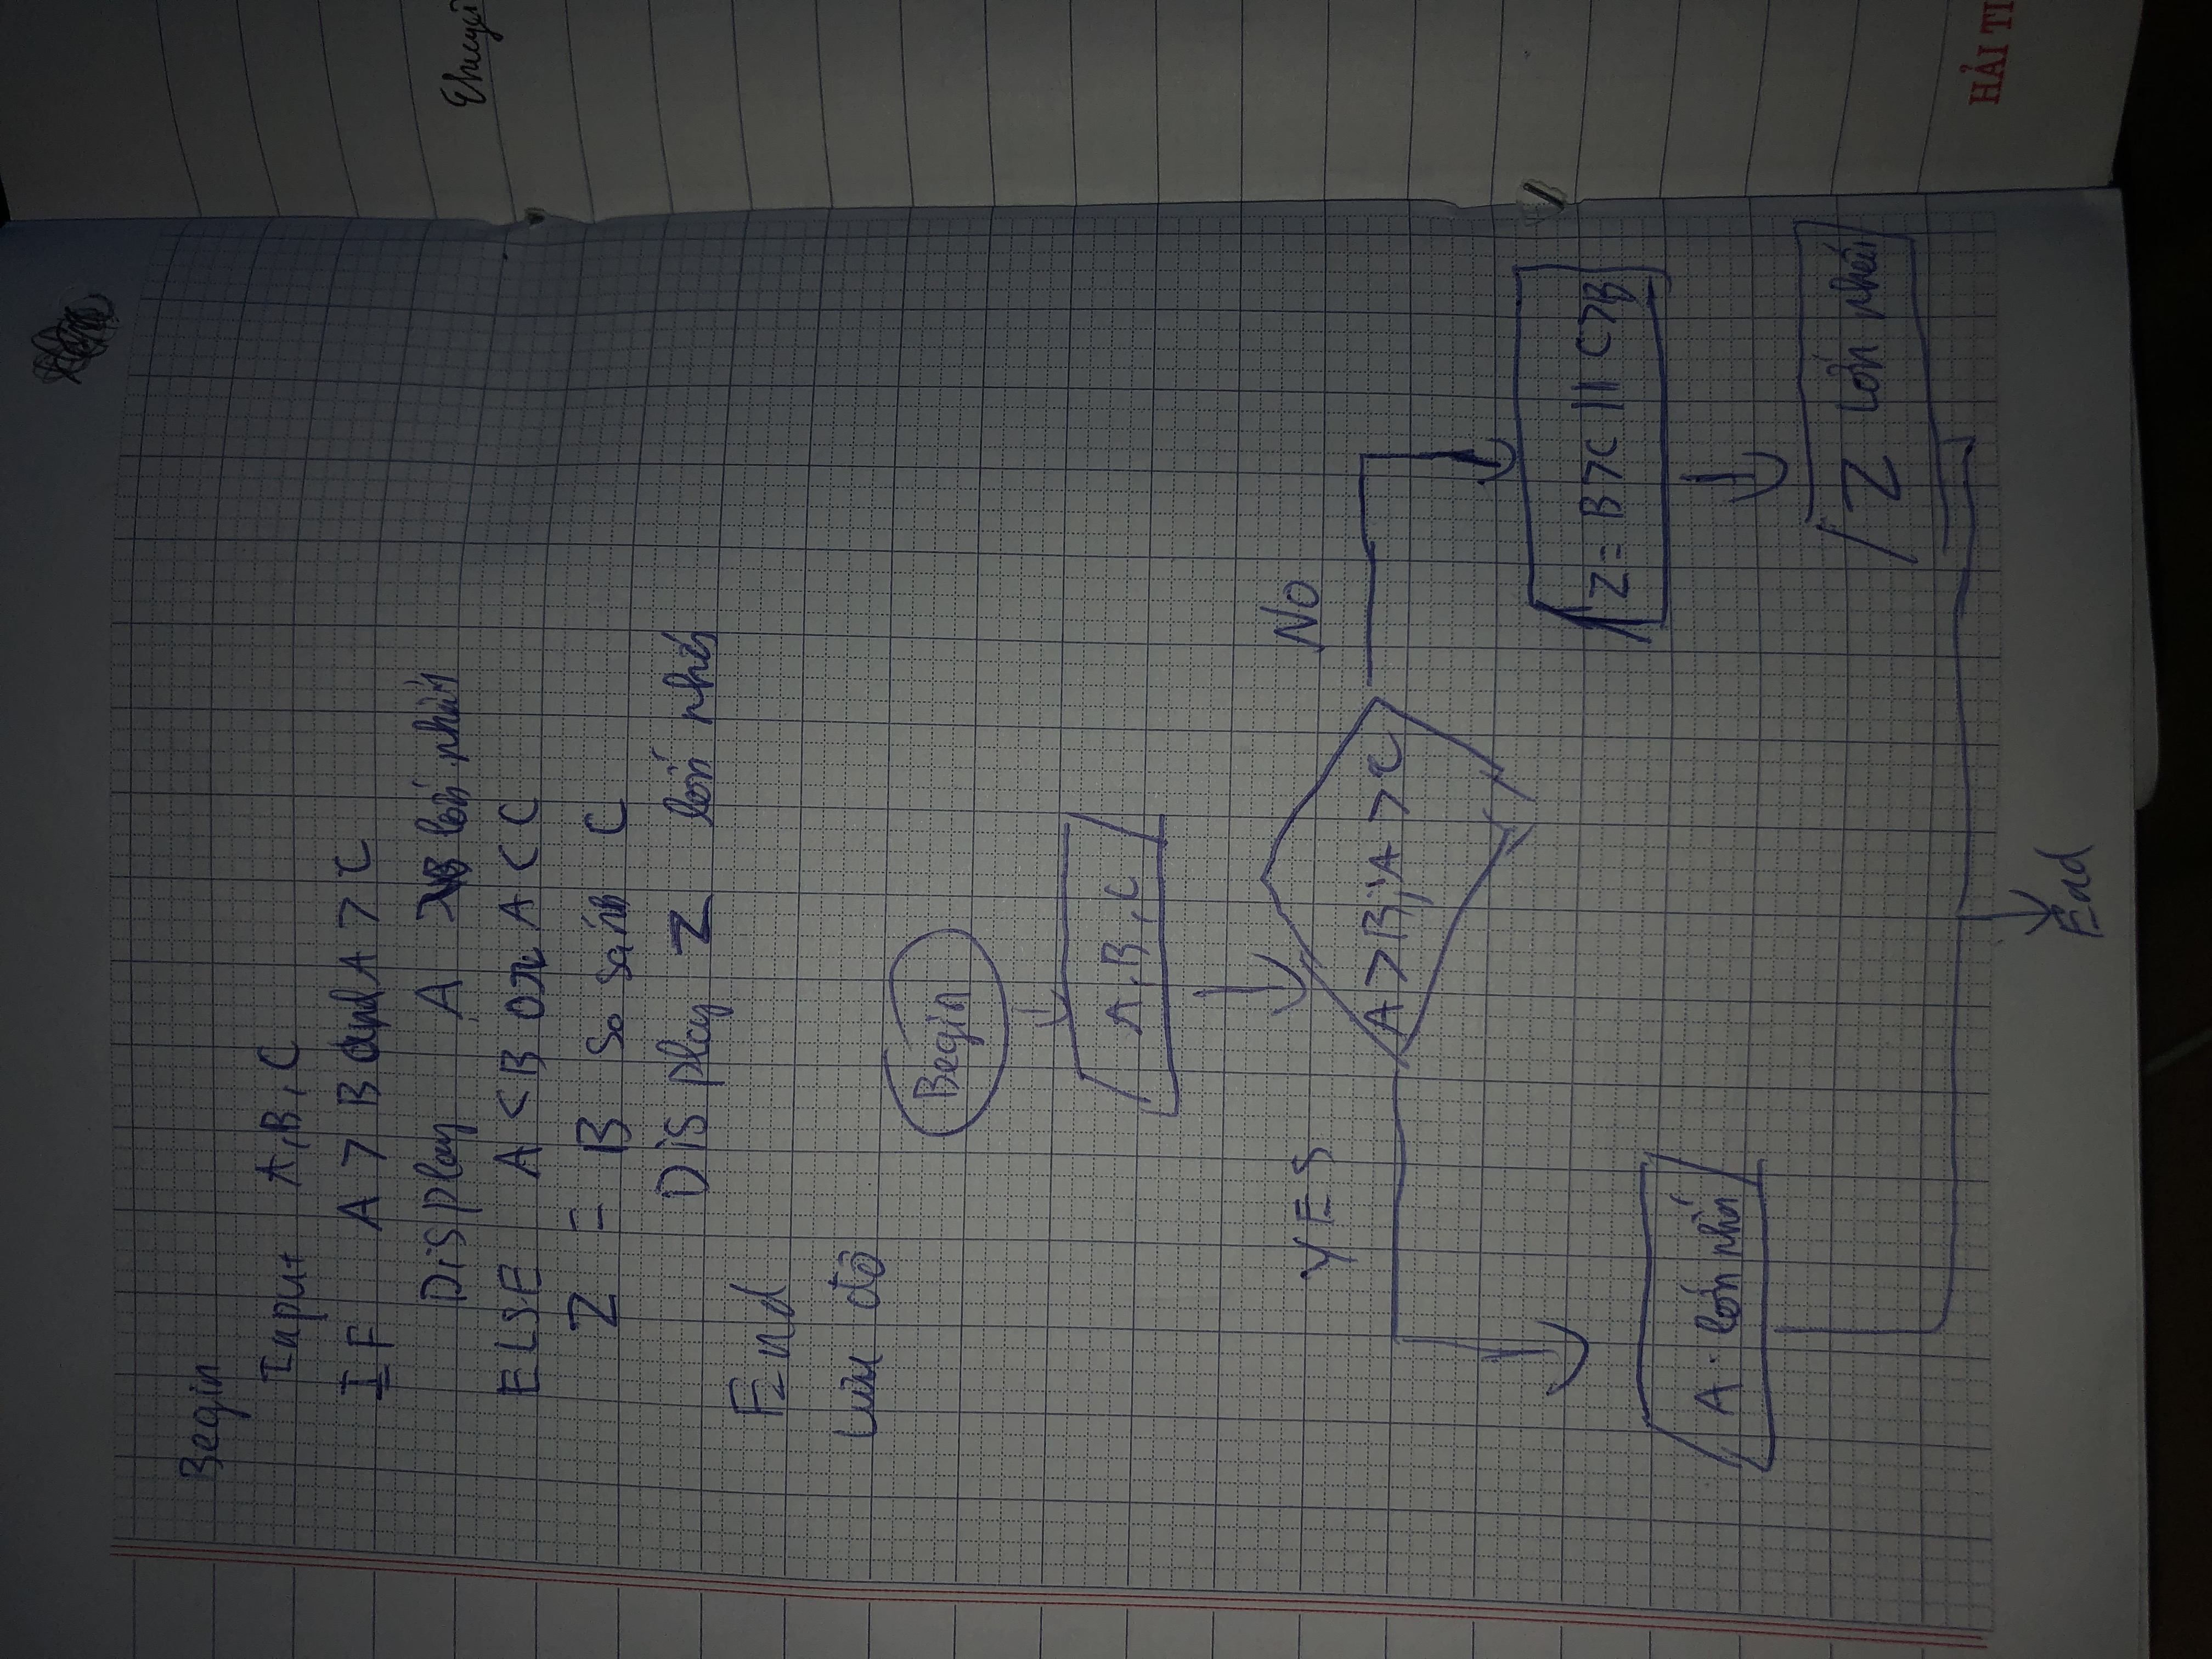 Begin
Input A, B, C
IF A > B and A > C
Display A lớn nhất
ELSE A < B or A < C
Z = B so sánh C
Display Z lớn nhá
End
Lưu đồ
Begin
A, B, C
YES
NO
A > B; A > C
Z = B > C || C > B
A lớn nhấ
Z Lớn nhất
End
HẢI TI